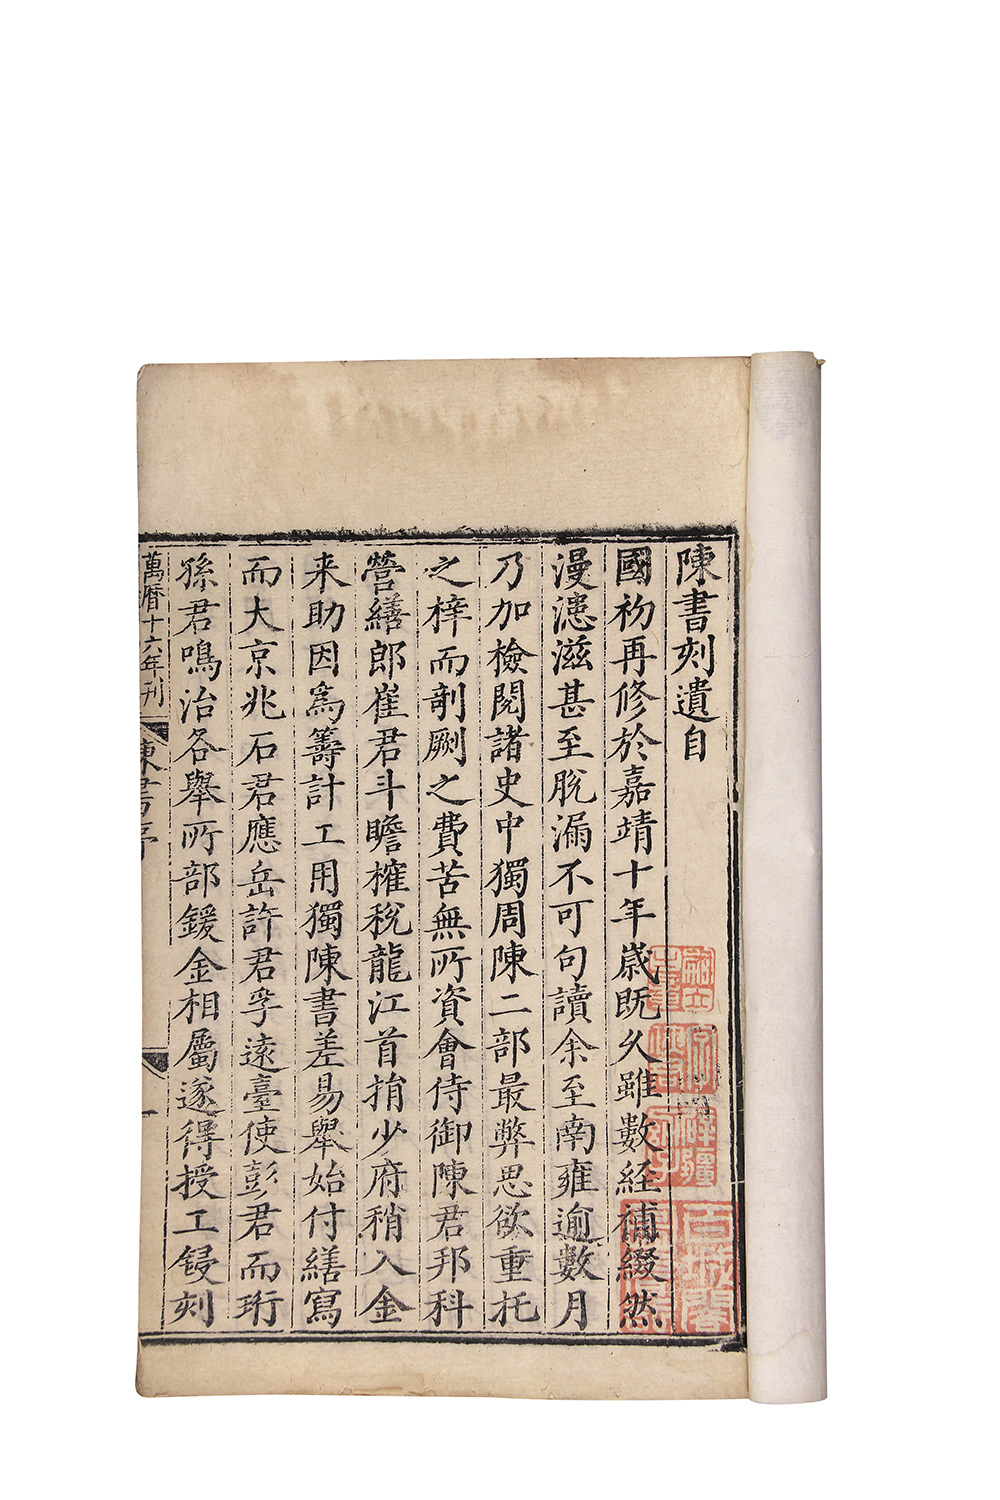 陳書刻遺自
國初再修於嘉靖十年歲既久雖數經補綴然
漫漶滋甚至脫漏不可句讀余至南雍逾數月
乃加檢閱諸史中獨周陳二部最弊思欲重托
之梓而剞劂之費苦無所資會侍御陳君邦科
營繕郎崔君斗瞻榷稅龍江首捐少府稍入金
来助因爲籌計工用獨陳書差易舉始付繕寫
而大京兆石君應岳許君孚遠臺使彭君而珩
孫君鳴治各舉所部鍰金相屬遂得授工鋟刻
萬曆十六年刊
陳書序
一